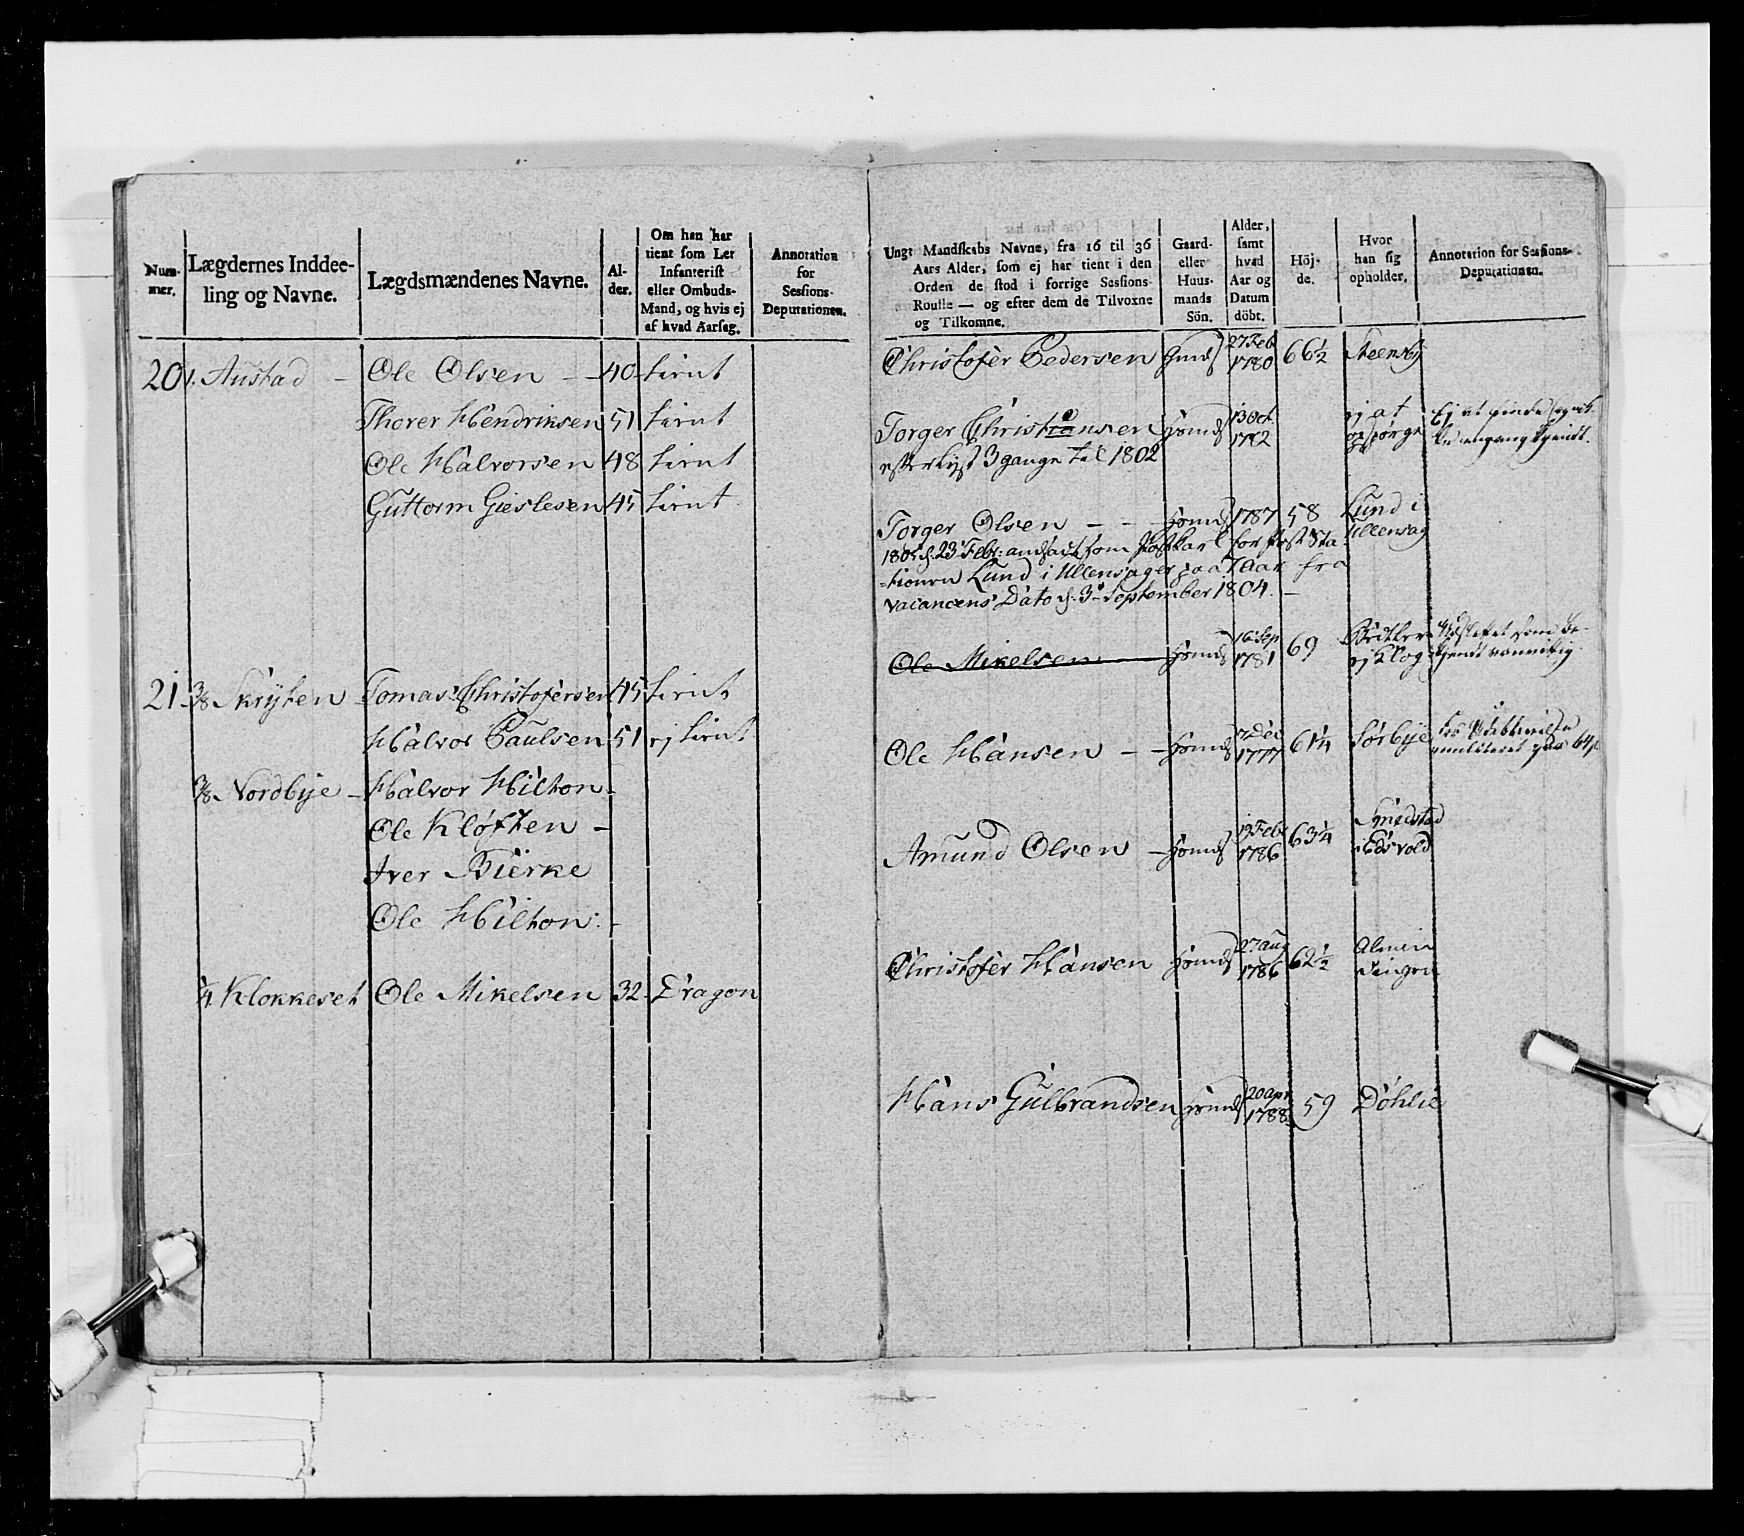 Num-
mer.
Lægdernes Inddee-
ling og Navne.
Lægdsmændenes Navne.
Al-
der.
Om han har
tient som Let
Infanterist
eller Ombuds-
Mand, og hvis ej
af hvad Aarsag.
Annotation
for
Sessions-
Deputationen.
20 1. Austad - Ole Olsen - 40 tient
Thorer Hendriksen 51 tient
Ole Halvorsen 48 tient
Guttorm Gieslesen 45 tient
21 3/8 Skryten Tomas Christofersen 45 tient
Halvor Paulsen 51 ej tient
3/8 Nordbye - Halvor Hilton -
Ole Kløften -
Iver Bierke
Ole Hilton -
1/4 Klokkeset Ole Mikelsen 32 Dragon
Ungt Mandskabs Navne, fra 16 til 36
Aars Alder, som ej har tient i den
Orden de stod i forrige Sessions-
Roulle — og efter dem de Tilvoxne
og Tilkomne.
Gaard-
eller
Huus-
mands
Sön.
Alder,
samt
hvad
Aar og
Datum
döbt.
Höj-
de.
Hvor
han sig
opholder.
Annotation for Sessions-
Deputationen.
Christofer Pedersen 27 Feb 1780 66 1/2
Torger Christensen 13 Oct 1782 ej at
efterlyst 3 gange til 1802
Torger Olsen - - 1787 58 Lund i
Ullensag
1805 d. 23 Febr: ansat som Postkarl for Post Sta-
tionen Lund i Ullensager paa 7 Aar fra
vacancens Dato d. 3 September 1804. -
Ole Mikelsen 16 Sep 1781 69
Ole Hansen - 1777 61 1/4 Sørbye
Amund Olsen - 19 Feb 1786 63 1/4 Smedstad
i Edsvold
Christofer Hansen 27 Aug 1786 62 1/2 Almein
dingen
Hans Gulbrandsen 20 apr 1788 59 Döhlie